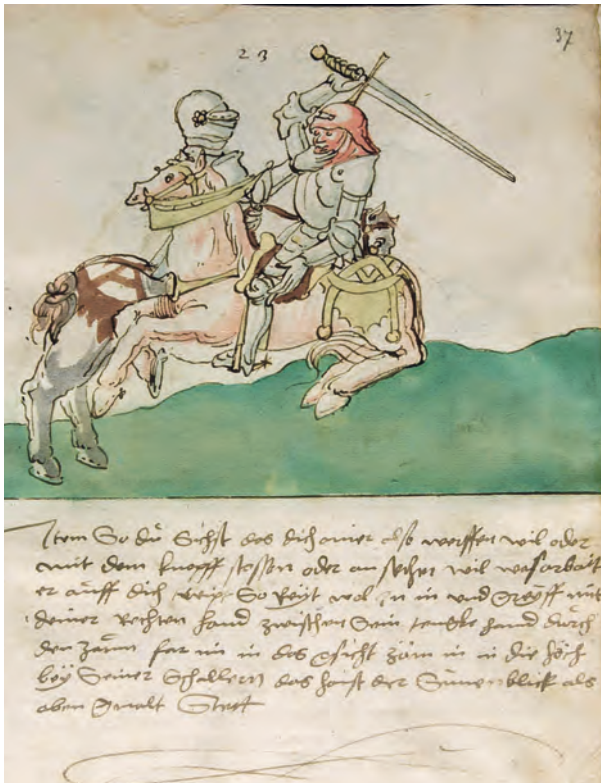 23
37
Item So du Sichst das dich ainer also werffen wil oder
mit dem knopff stossen oder an wil was arbait
er auff dich treipt So Reyt wol zu in und Greyff mit
deiner Rechten hand zwischen Sein tencke hand durch
den zaum far im in das gsicht in in die höch
bey Seiner Schallern das haist der Sunnen blick als
oben Gmalt Stett